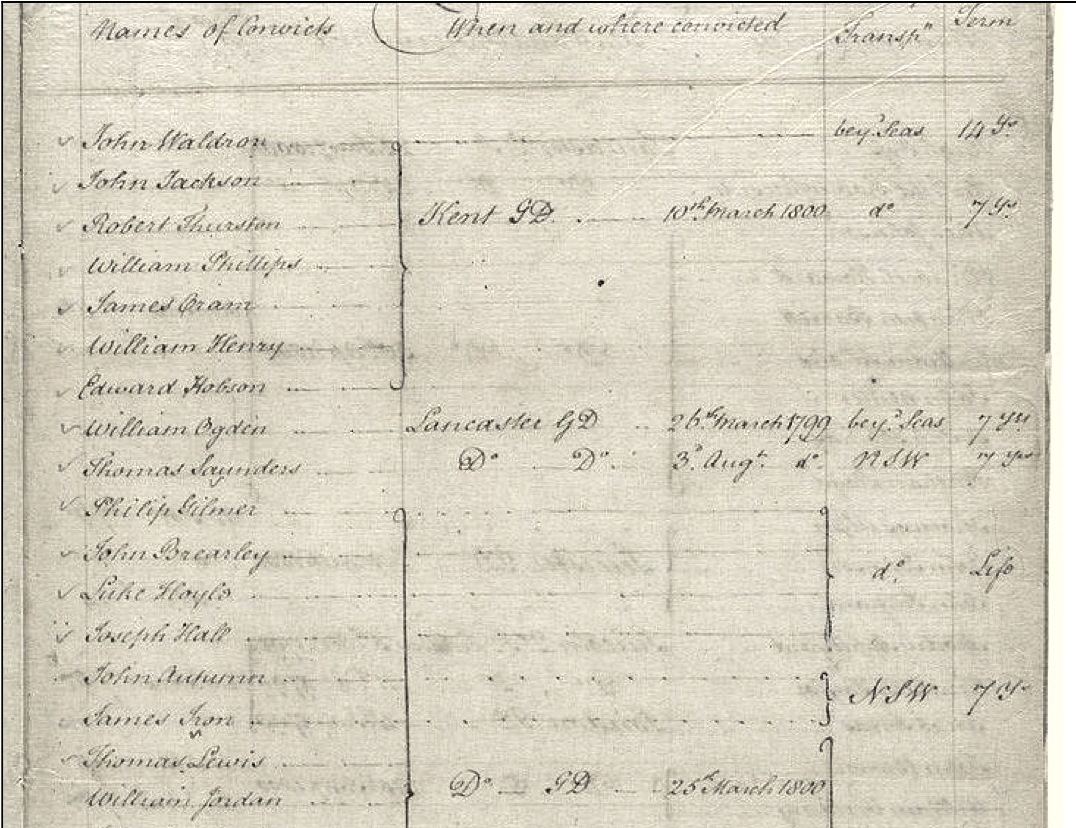 Names of Convicts When and where convicted Transpⁿ Term
John Waldron beyᵈ Seas 14 Yˢ
John Jackson
Robert Thurston Kent GD 10ᵗʰ March 1800 dᵒ 7 Yˢ
William Phillips
James Oram
William Henry
Edward Hobson
William Ogden Lancaster GD 26ᵗʰ March 1799 beyᵈ Seas 7 Yrs
Thomas Saunders Dᵒ Dᵒ 3ᵈ Augᵗ dᵒ NSW 7 Yrs
Philip Gilmer
John Brearley
Luke Hoyle dᵒ Life
Joseph Hall
John Autumn
James Iron NSW 7 Yˢ
Thomas Lewis
William Jordan Dᵒ GD 25ᵗʰ March 1800